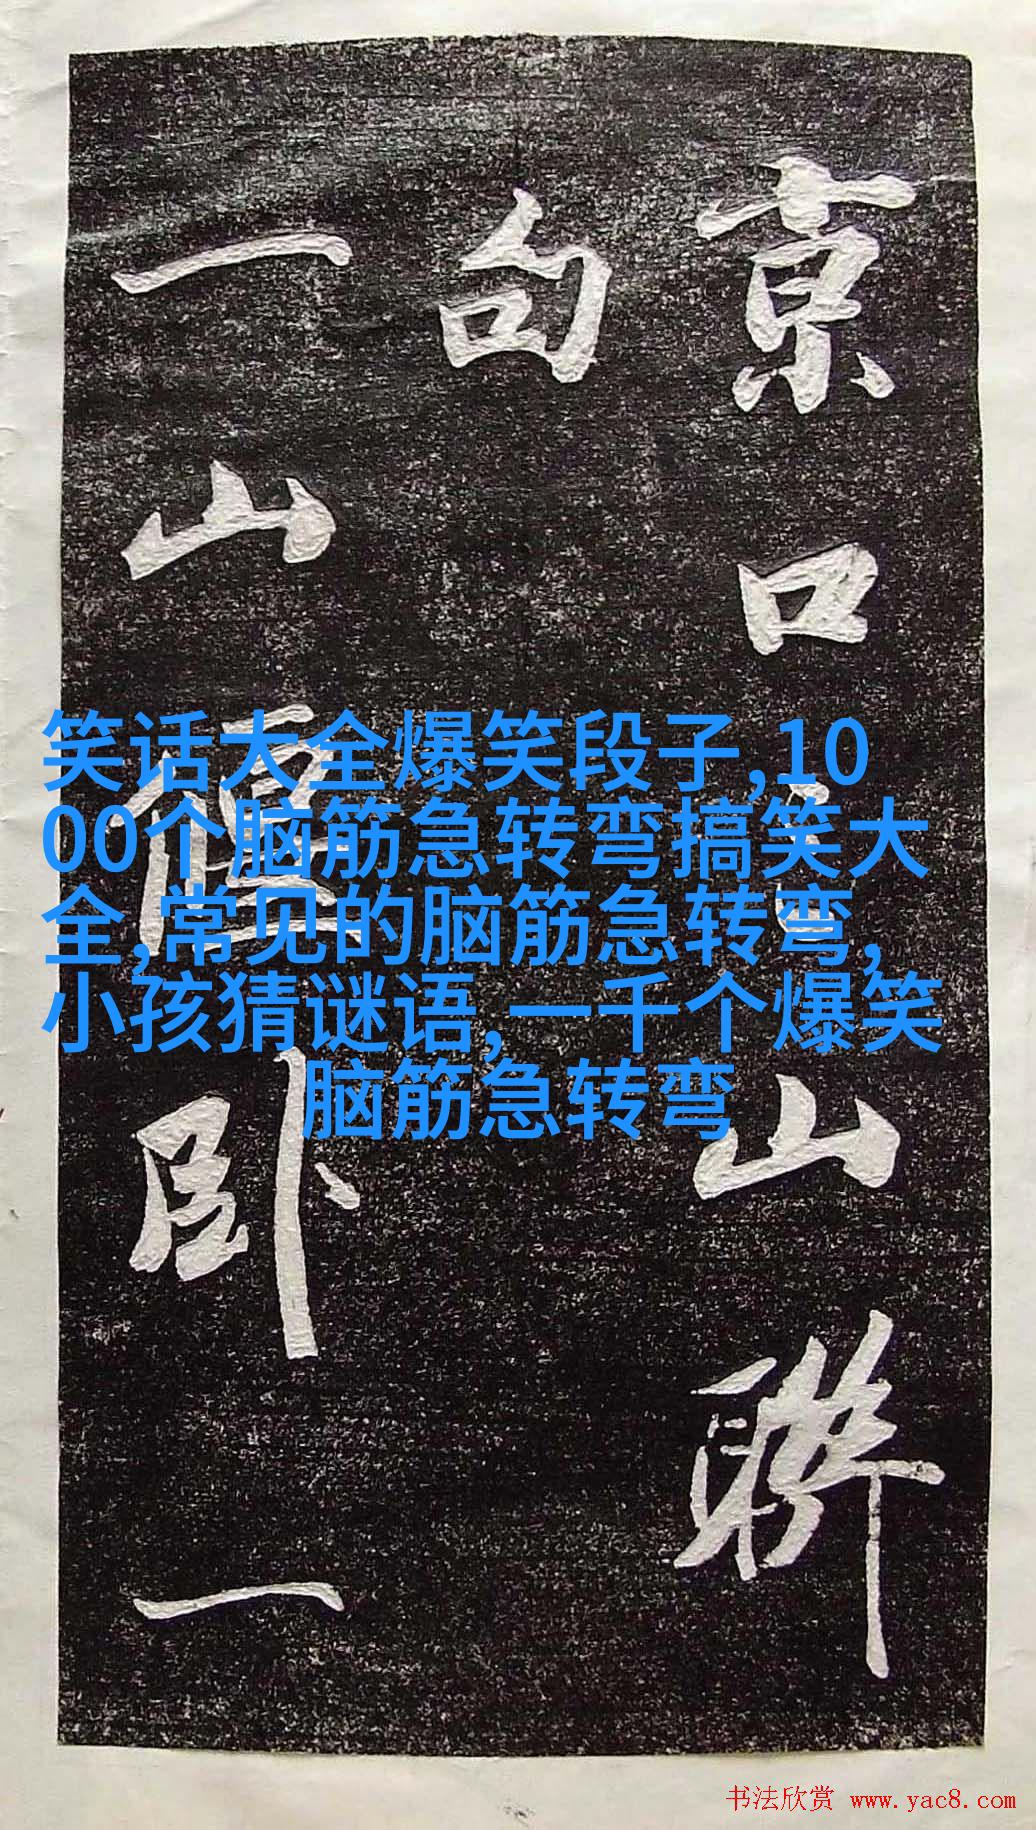 京口三山聯
句
一山僵卧一
笑话大全爆笑段子,10
00个脑筋急转弯搞笑大
全,常见的脑筋急转弯,
小孩猜谜语,一千个爆笑
脑筋急转弯
书法欣赏 www.yac8.com